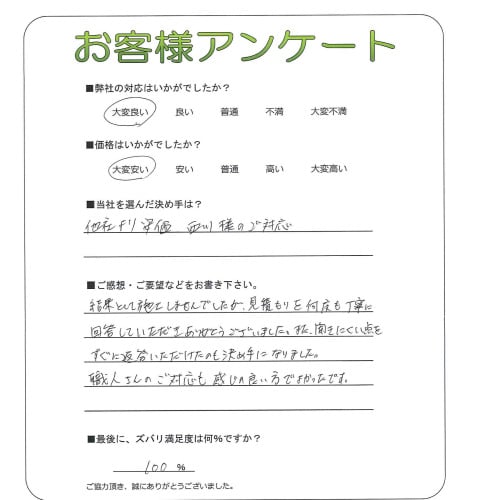 お客様アンケート
■弊社の対応はいかがでしたか？
大変良い 良い 普通 不満 大変不満
■価格はいかがでしたか？
大変安い 安い 普通 高い 大変高い
■当社を選んだ決め手は？
他社より安価 西川様のご対応
■ご感想・ご要望などをお書き下さい。
結果として施工しませんでしたが、見積もりを何度も丁寧に
回答していただきありがとうございました。また、聞きにくい点を
すぐに返答いただけたのも決め手になりました。
職人さんのご対応も感じの良い方でよかったです。
■最後に、ズバリ満足度は何%ですか？
100 %
ご協力頂き、誠にありがとうございました。